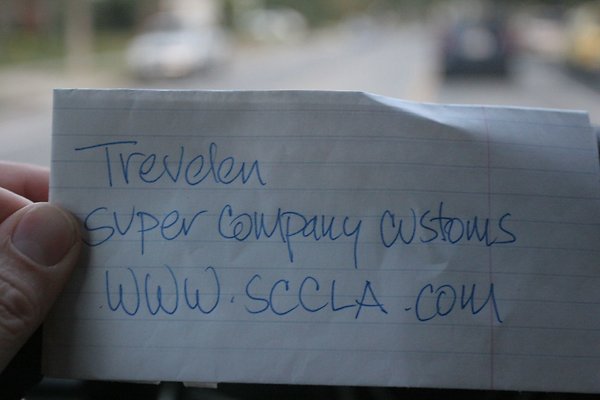 Trevelen
super company customs
www.SCCLA.com